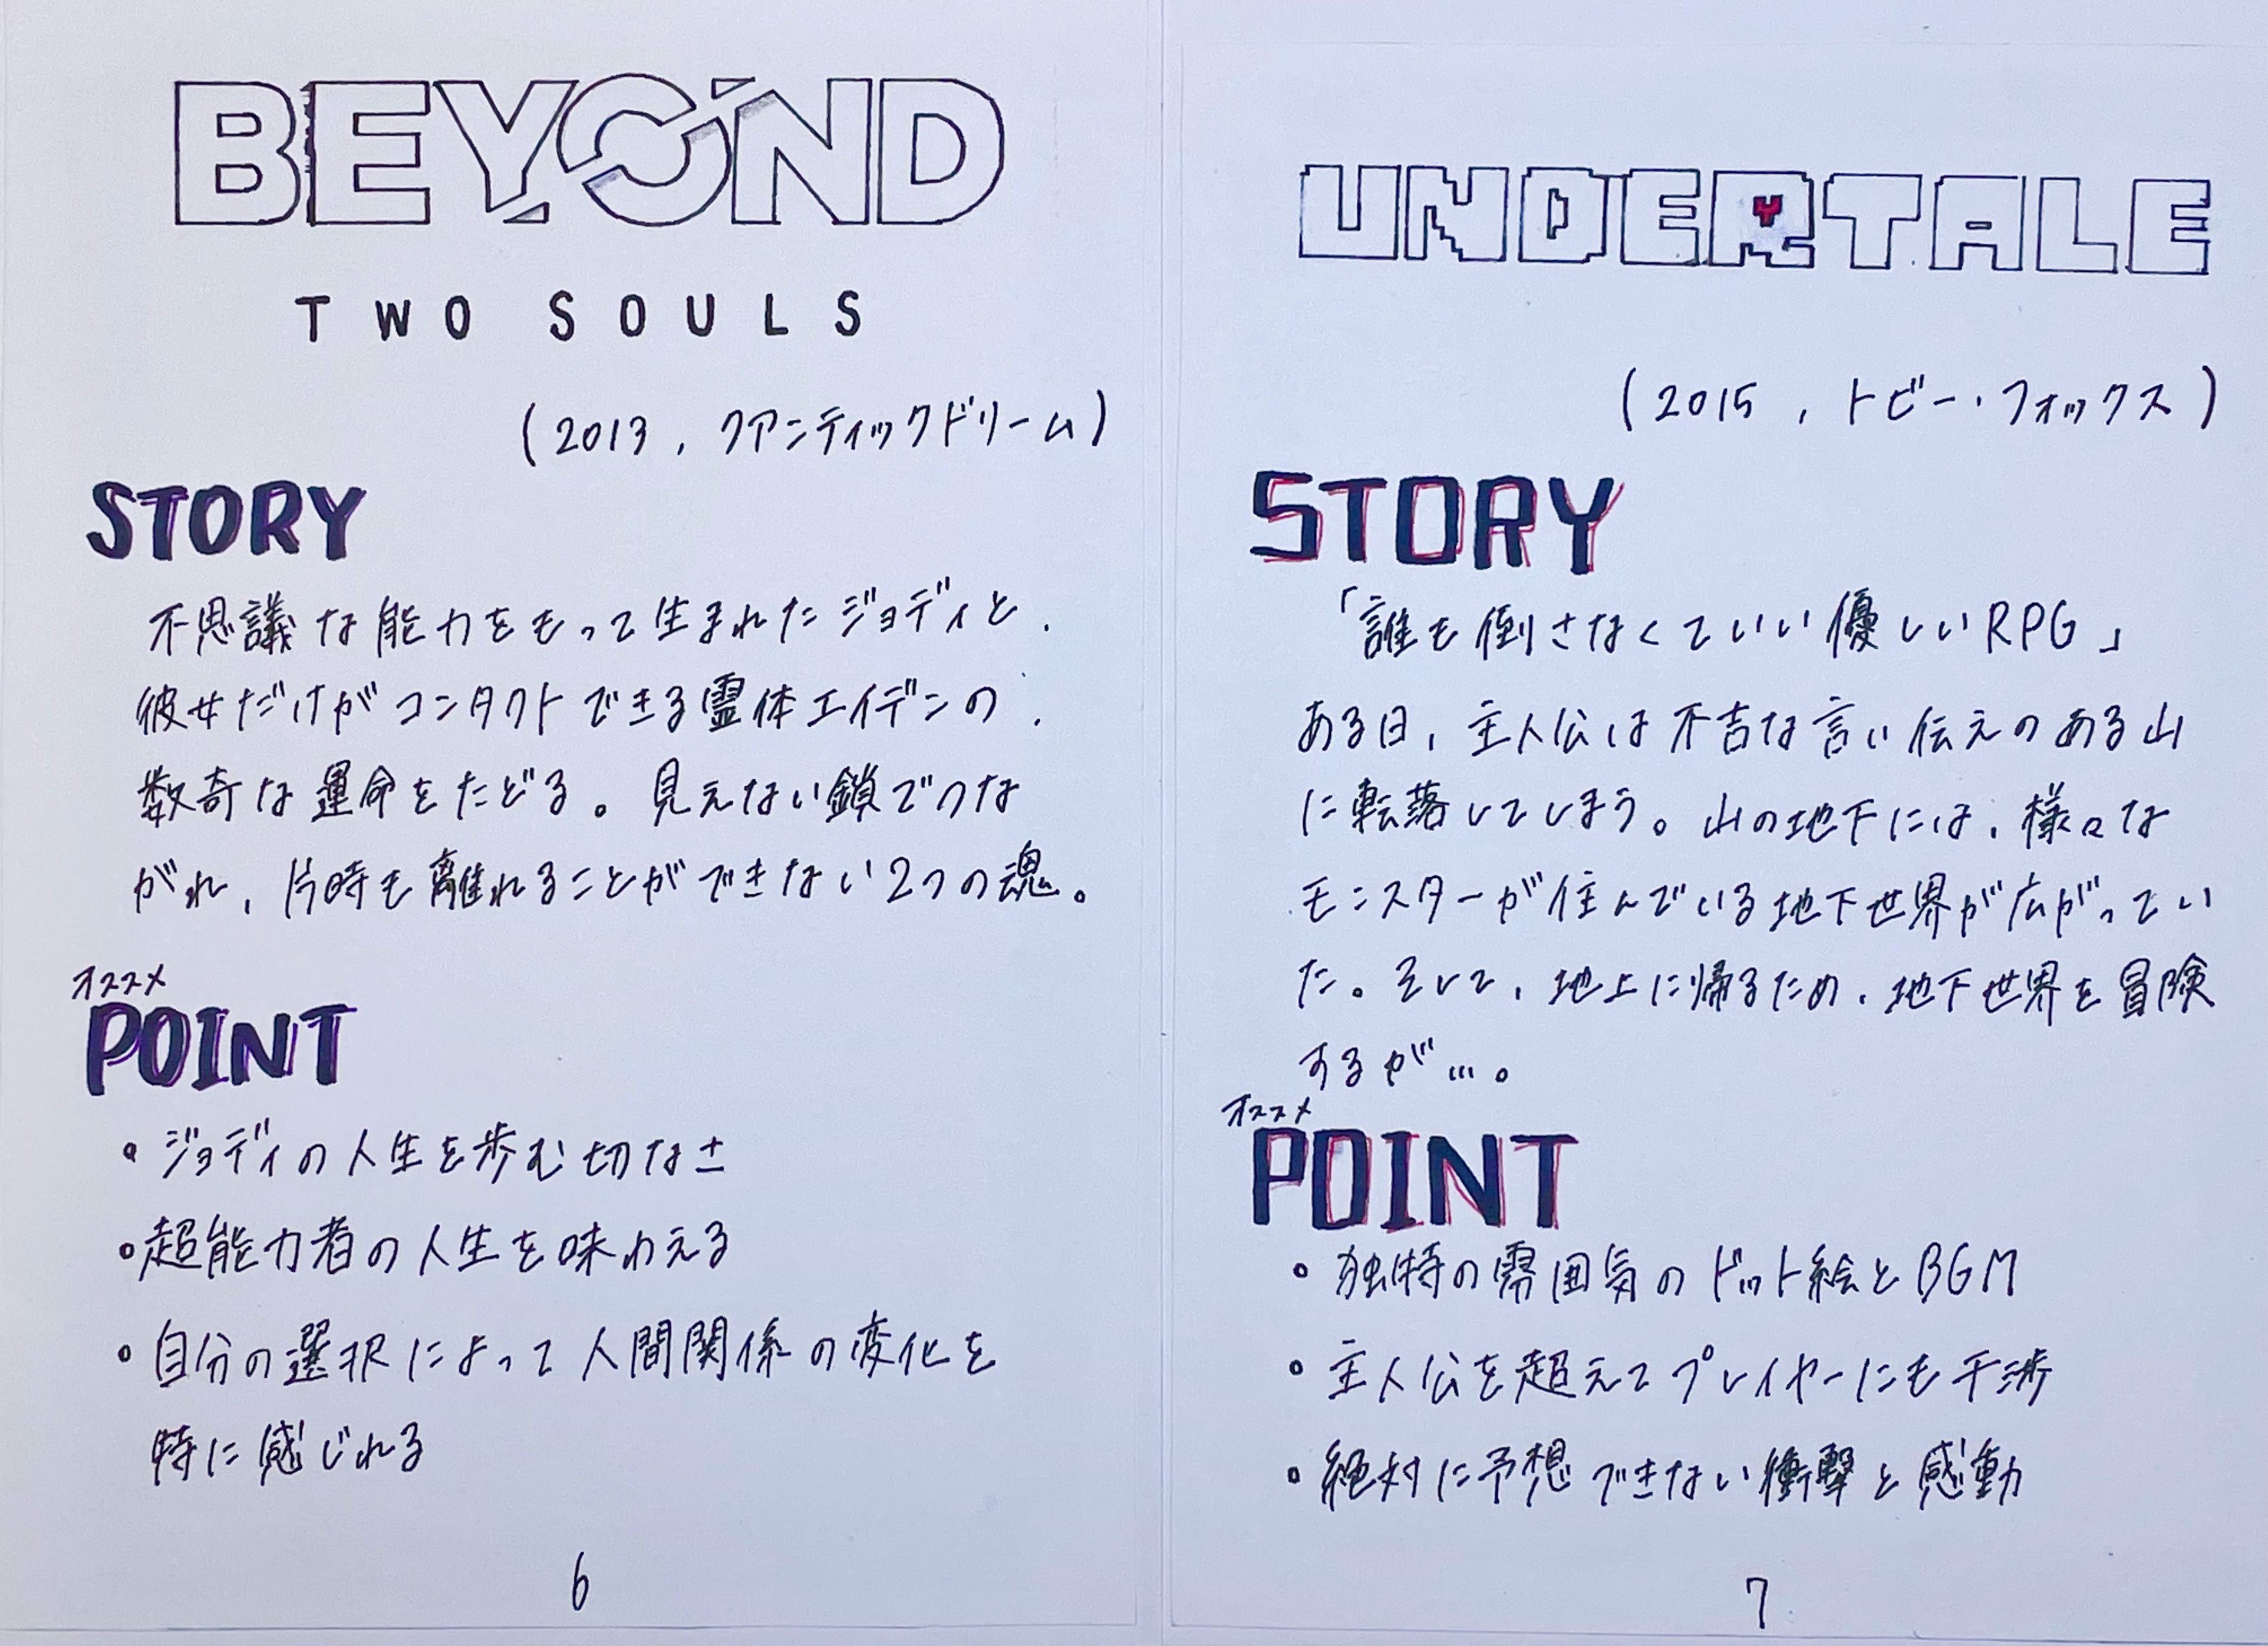 BEYOND
TWO SOULS
(2013, クアンティックドリーム)
STORY
不思議な能力をもって生まれたジョディと、
彼女だけがコンタクトできる霊体エイデンの、
数奇な運命をたどる。見えない鎖でつな
がれ、片時も離れることができない2つの魂。
オススメ
POINT
・ジョディの人生を歩む切なさ
・超能力者の人生を味わえる
・自分の選択によって人間関係の変化を
特に感じれる
6
UNDERTALE
(2015, トビー・フォックス)
STORY
「誰も倒さなくていい優しいRPG」
ある日、主人公は不吉な言い伝えのある山
に転落してしまう。山の地下には、様々な
モンスターが住んでいる地下世界が広がってい
た。そして、地上に帰るため、地下世界を冒険
するが…。
オススメ
POINT
・独特の雰囲気のドット絵とBGM
・主人公を超えてプレイヤーにも干渉
・絶対に予想できない衝撃と感動
7